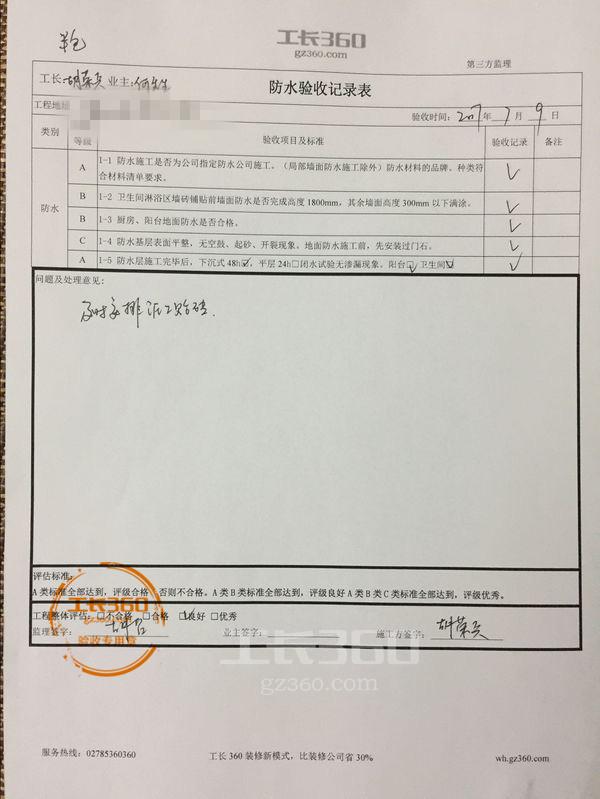 半包
工长360
gz360.com
第三方监理
工长:胡荣兵 业主:何先生
防水验收记录表
工程地址
验收时间:2017年7月9日
类别 等级 验收项目及标准 验收记录 备注
防水
A 1-1 防水施工是否为公司指定防水公司施工。(局部墙面防水施工除外)防水材料的品牌、种类符
合材料清单要求。 ✓
B 1-2 卫生间淋浴区墙砖铺贴前墙面防水是否完成高度 1800mm,其余墙面高度 300mm 以下满涂。 ✓
B 1-3 厨房、阳台地面防水是否合格。 ✓
C 1-4 防水基层表面平整,无空鼓、起砂、开裂现象。地面防水施工前,先安装过门石。 ✓
A 1-5 防水层施工完毕后,下沉式 48h☑,平层 24h□闭水试验无渗漏现象。阳台☑ 卫生间☑ ✓
问题及处理意见:
及时安排泥工贴砖.
工长360
gz360.com
评估标准:
A 类标准全部达到,评级合格,否则不合格。A 类 B 类标准全部达到,评级良好 A 类 B 类 C 类标准全部达到,评级优秀。
工程整体评估:□不合格 □合格 ☑良好 □优秀
监理签字: 业主签字: 施工方签字:胡荣兵
工长360
验收专用章
工长360
gz360.com
服务热线:02785360360 工长 360 装修新模式,比装修公司省 30% wh.gz360.com